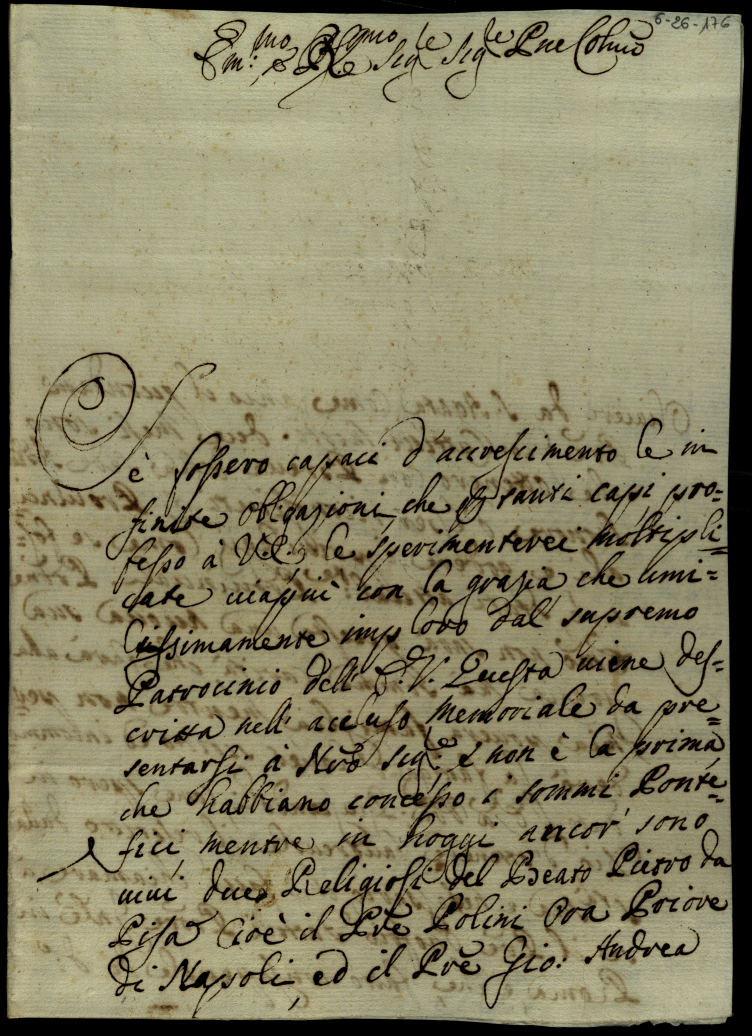 6-26-176
Em:mo e R.mo Sig.re Sig.re Pne Colmo
Se fossero capaci d'accrescimento le in
finite obligazioni che p tanti capi pro=
fesso à V.E. le sperimenterei moltipli=
cate viappiù con la grazia che umi=
lissimamente imploro dal supremo
Patrocinio dell' E.V. Questa viene des=
critta nell' accluso memoriale da pre=
sentarsi à Nro Sig.re e non è la prima
che habbiano concesso i sommi Ponte=
fici, mentre in hoggi ancor' sono
vivi due Religiosi del Beato Pietro da
Pisa Cioè il Pre Polini Ora Priore
di Napoli, ed il Pre Gio: Andrea